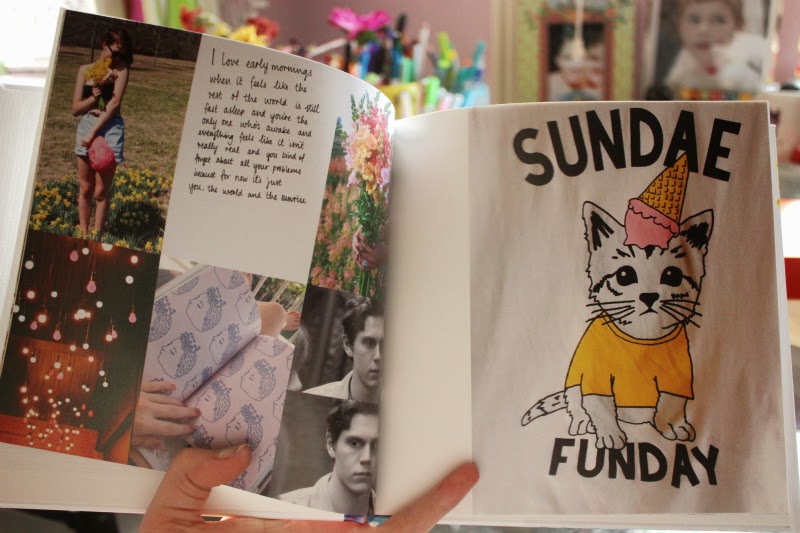 I love early mornings
when it feels like the
rest of the world is still
fast asleep and you're the
only one who's awake and
everything feels like it isn't
really real and you kind of
forget about all your problems
because for now it's just
you, the world and the sunrise
SUNDAE
FUNDAY